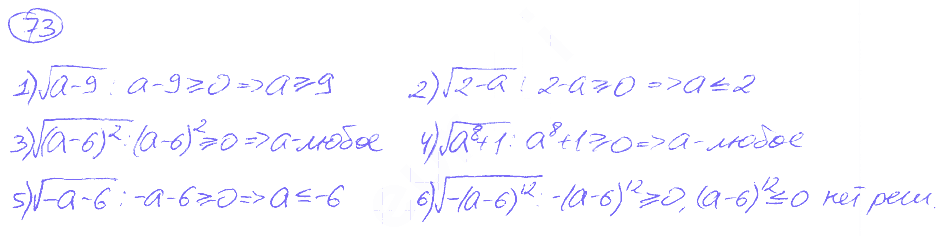 73
1) √(a-9) : a-9≥0 => a≥9 2) √(2-a) : 2-a≥0 => a≤2
3) √((a-6)²) : (a-6)²≥0 => a-любое 4) √(a⁸+1) : a⁸+1≥0 => a-любое
5) √(-a-6) : -a-6≥0 => a≤-6 6) √(-(a-6)¹²) : -(a-6)¹²≥0, (a-6)¹²≤0 нет реш.